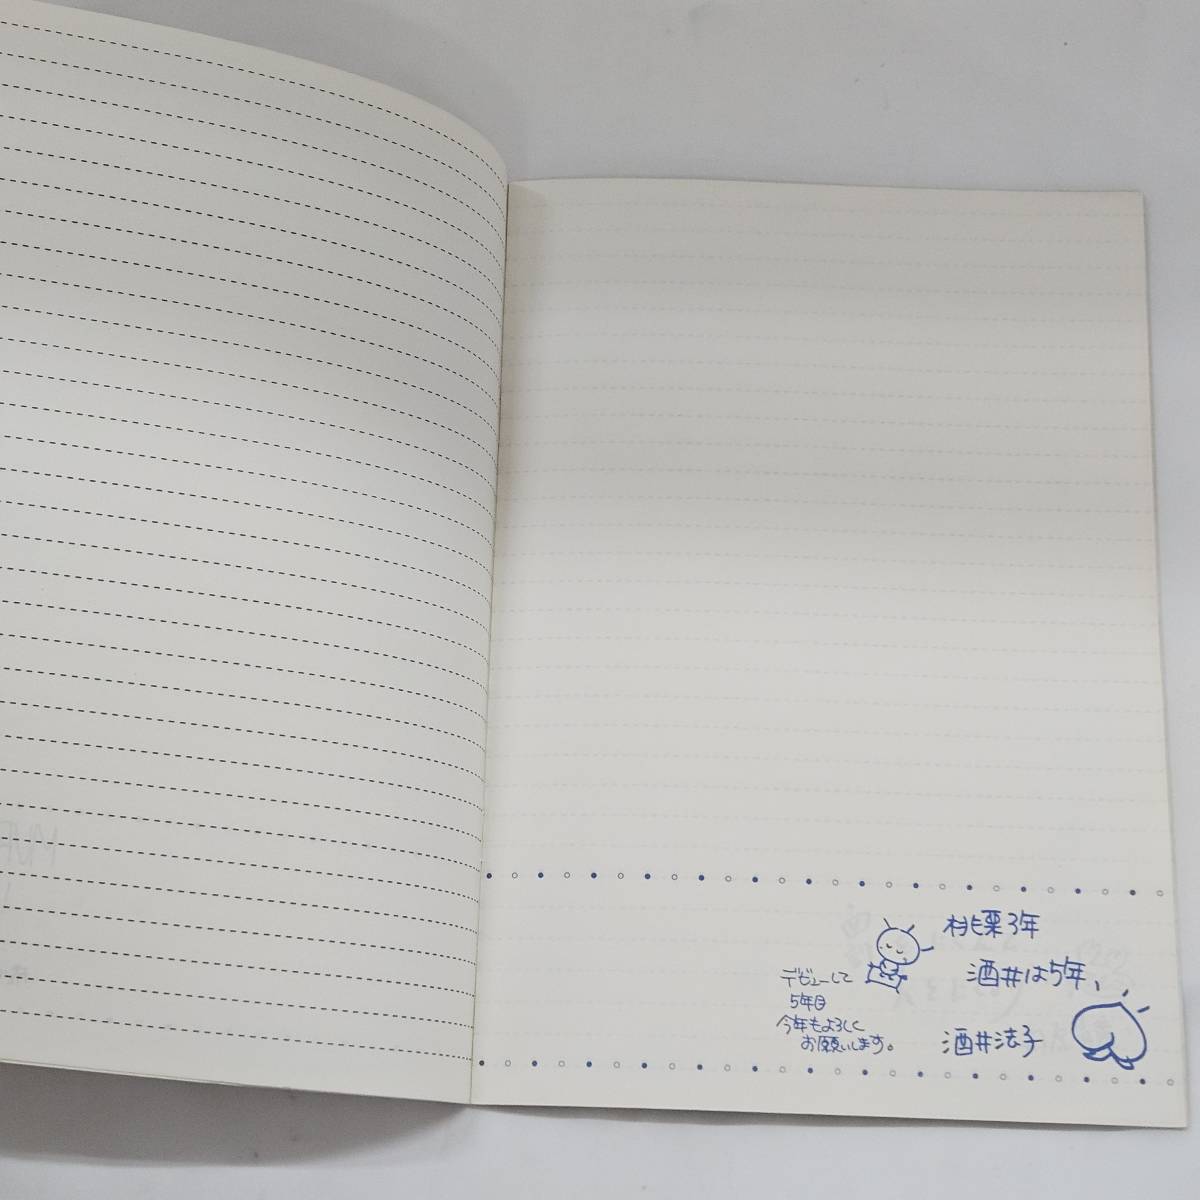 桃栗3年
酒井は5年、
酒井法子
デビューして
5年目
今年もよろしく
お願いします。